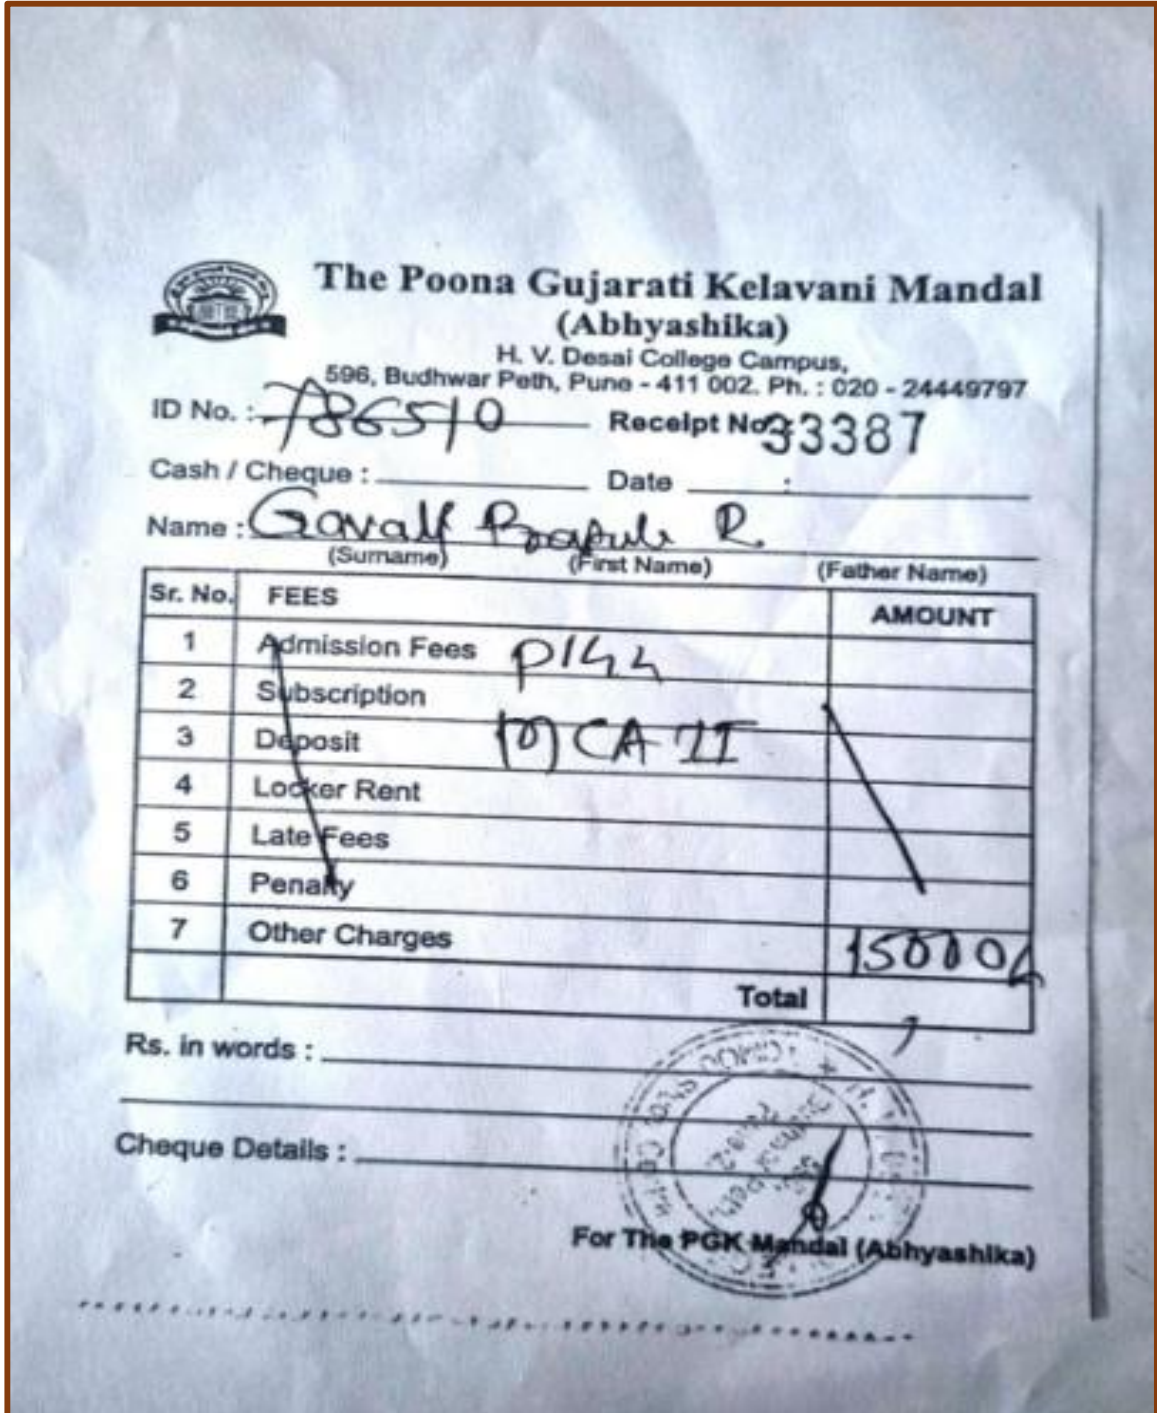 The Poona Gujarati Kelavani Mandal
(Abhyashika)
H. V. Desai College Campus,
596, Budhwar Peth, Pune - 411 002. Ph. : 020 - 24449797
ID No. : 786510 Receipt No. : 33387
Cash / Cheque : Date :
Name : R.
(Surname) (First Name) (Father Name)
Sr. No. FEES AMOUNT
1 Admission Fees
2 Subscription
3 Deposit MCA II
4 Locker Rent
5 Late Fees
6 Penalty
7 Other Charges 15000
Total
Rs. in words :
Cheque Details :
For The PGK Mandal (Abhyashika)